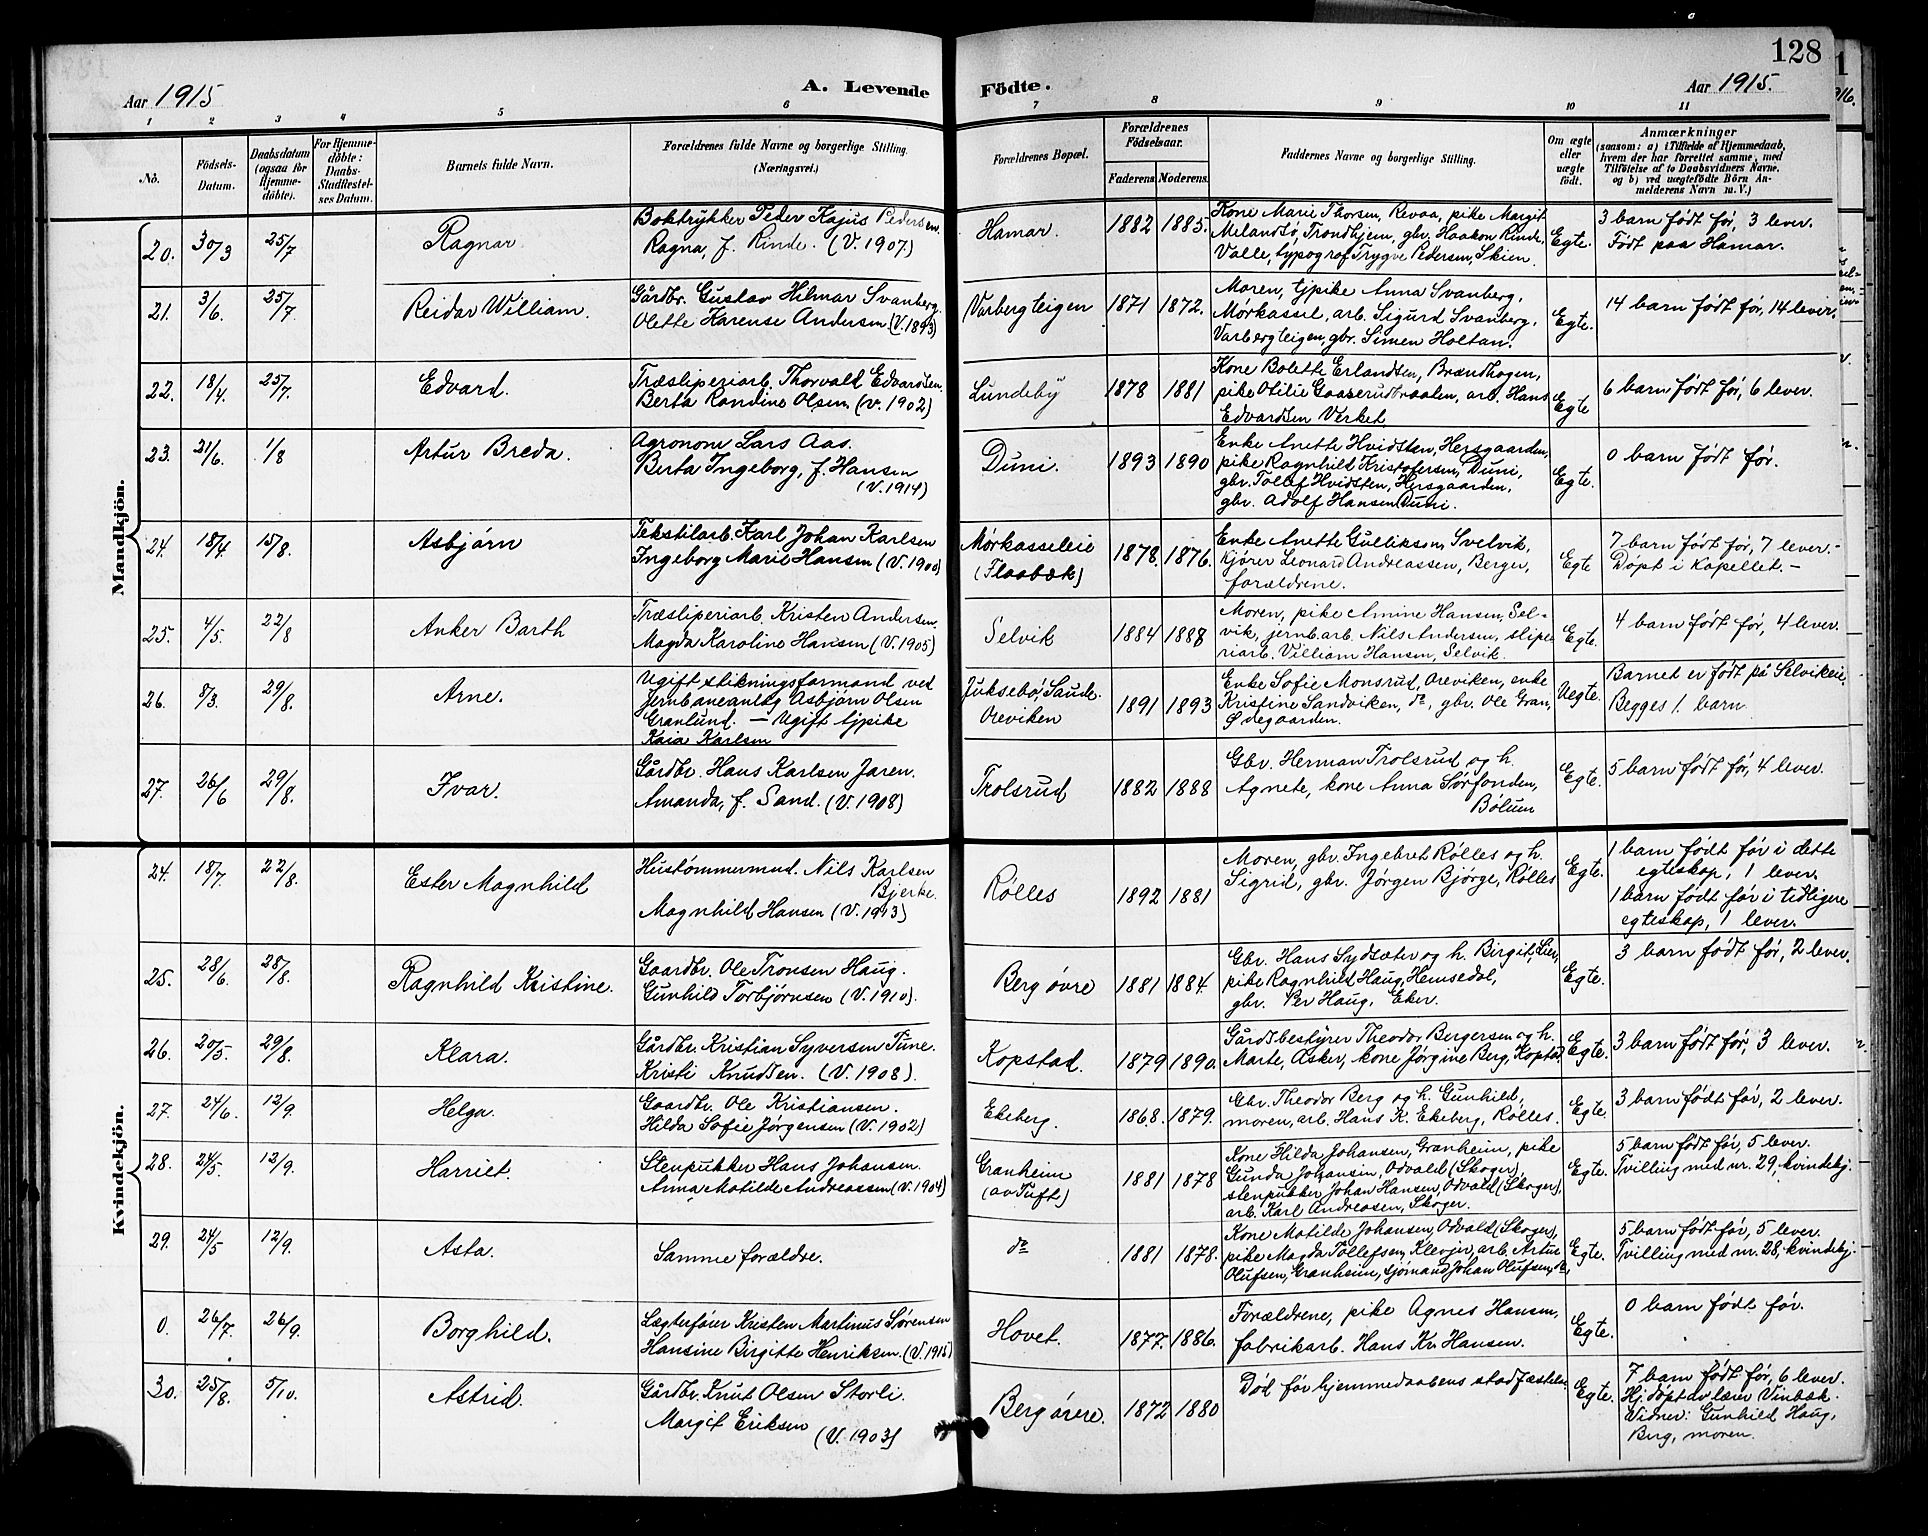 128
Aar 1915
A. Levende
Födte.
Aar 1915.
1 2 3 4 5 6 7 8 9 10 11
No.
Födsels-
Datum.
Daabsdatum
(ogsaa for
Hjemme-
döbte).
For Hjemme-
döbte:
Daabs-
Stadfæstel-
ses Datum.
Barnets fulde Navn.
Forældrenes fulde Navne og borgerlige Stilling.
(Næringsvei.)
Forældrenes Bopæl.
Forældrenes
Födselsaar.
Faderens. Moderens.
Faddernes Navne og borgerlige Stilling.
Om ægte
eller
uægte
födt.
Anmærkninger
(saasom: a) i Tilfælde af Hjemmedaab,
hvem der har forrettet samme, med
Tilföielse af to Daabsvidners Navne,
og b) ved uægtefödte Börn An-
melderens Navn m. V.)
Mandkjön.
20. 30/3 25/7 Ragnar
Boktrykker Peder Kajus Pedersen.
Ragna, f. Rinde. (V. 1907.)
Hamar. 1882 1885.
Kone Marie Thorsen, Revaa, pike Margit
Milandsø, Trondhjem, gbr. Haakon Rinde,
Valle, typograf Trygve Pedersen, Skien.
Egte.
3 barn født før, 3 lever.
Født paa Hamar.
21. 3/6. 25/7. Reidar William.
Gårdbr. Gustav Hilmar Svanberg.
Olette Harense Andersen (V. 1893)
Varbergteigen 1871 1872.
Moren, tjpike Anna Svanberg,
Mørkassel, arb. Sigurd Svanberg,
Varbergteigen, gbr. Simen Holtan.
Egte.
14 barn født før, 14 lever.
22. 18/4 25/7. Edvard.
Træsliperiarb. Thorvald Edvardsen.
Berta Randine Olsen (V. 1902)
Lundeby 1878 1881
Kone Bolette Erlandsen, Brændhagen,
pike Otilie Gaaserudbraaten, arb. Hans
Edvardsen Verket
Egte
6 barn født før, 6 lever.
23. 21/6. 1/8 Artur Breda.
Agronom Lars Aas.
Berta Ingeborg, f. Hansen
(V. 1914)
Duni. 1893 1890
Enke Anette Hvidsten, Hersgaarden,
pike Ragnhild Kristofersen, Duni,
gbr. Tollef Hvidsten, Hersgaarden,
gbr. Adolf Hansen, Duni.
Egte.
0 barn født før.
24. 18/4 15/8. Asbjørn
Tekstilarb. Karl Johan Karlsen
Ingeborg Marie Hansen (V. 1900)
Mørkasseleie
(Flaabæk)
1878. 1876.
Enke Anette Gulliksen, Svelvik,
kjører Leonard Andreassen, Berger,
forældrene.
Egte
7 barn født før, 7 lever.-
Døpt i kapellet.-
25. 4/5 22/8 Anker Barth
Træsliperiarb. Kristen Andersen.
Magda Karoline Hansen (V. 1905)
Selvik 1884 1888
Moren, pike Amine Hansen, Sel-
vik, jernb.arb. Nils Andersen, slipe-
riarb. Villiam Hansen, Selvik.
Egte.
4 barn født før, 4 lever.
26. 8/3. 29/8. Arne.
Ugift stikningsformand ved
Jernbaneanlæg Asbjørn Olsen
Granlund. - Ugift tjpike
Kaia Karlsen
Juksebø, Saude.
Oreviken
1891 1893
Enke Sofie Monsrud, Oreviken, enke
Kristine Sandviken, do, gbr. Ole Gran,
Ødegaarden.
Uegte.
Barnet er født på Selvikeie.
Begges 1. barn
27. 26/6 29/8. Ivar.
Gårdbr. Hans Karlsen Jaren.
Amanda, f. Sand. (V. 1908)
Trolsrud 1882 1888
Gbr. Herman Trolsrud og h.
Agnete, kone Anna Sørfonden,
Bølum
Egte.
5 barn født før, 4 lever.
Kvindekjön.
24. 18/7. 22/8. Ester Magnhild
Hustømmermnd. Nils Karlsen
Bjerke.
Magnhild Hansen (V. 1913)
Rølles 1892 1881
Moren, gbr. Ingebret Rølles og h.
Sigrid, gbr. Jørgen Bjørge, Rølles
Egte.
1 barn født før i dette
egteskap, 1 lever.
1 barn født før i tidligere
egteskap, 1 lever.
25. 28/6. 28/8. Ragnhild Kristine.
Gaardbr. Ole Tronsen Haug.
Gunhild Torbjørnsen (V. 1910).
Berg øvre 1881 1884.
Gbr. Hans Sydsæter og h. Birgit, Lien,
pike Ragnhild Haug, Hemsedal,
gbr. Per Haug, Eker.
Egte.
3 barn født før, 2 lever.
26. 20/5. 29/8. Klara.
Gårdbr. Kristian Syversen Tune.
Kristi Knudsen. (V. 1908).
Kopstad. 1879 1890.
Gårdsbestyrer Theodor Bergersen og h.
Marte, Asker, kone Jørgine Berg, Kopstad.
Egte.
3 barn født før, 3 lever.
27. 24/6. 12/9. Helga.
Gaardbr. Ole Kristiansen.
Hilda Sofie Jørgensen (V. 1902)
Ekeberg. 1868. 1879.
Gbr. Theodor Berg og h. Gunhild,
moren, arb. Hans K. Ekeberg, Rølles.
Egte.
3 barn født før, 2 lever.
28. 24/5. 12/9. Harriet.
Stenpukker Hans Johansen.
Anna Matilde Andreassen (V. 1904)
Granheim
(av Tuft)
1881 1878
Kone Hilda Johansen, Granheim, pike
Gunda Johansen, Odvald (Skoger),
stenpukker Johan Hansen, Odvald (Skoger),
arb. Karl Andreasen, Skoger.
Egte.
5 barn født før, 5 lever.
Tvilling med nr. 29, kvindekj.
29. 24/5 12/9. Asta.
Samme forældre.
do 1881 1878.
Kone Matilde Johansen, Odvald (Skoger),
pike Magda Tollefsen, Klevjer, arb. Artur
Olufsen, Granheim, sjømand Johan Olufsen, do.
Egte.
5 barn født før, 5 lever.
Tvilling med nr. 28, kvindekj.
0. 26/7. 26/9. Borghild.
Lægterfører Kristen Martinus Sørensen
Hansine Birgitte Henriksen. (V. 1915)
Hovet. 1877. 1886.
Forældrene, pike Agnes Hansen,
fabrikarb. Hans Kr. Hansen.
Egte.
0 barn født før.
30. 25/8. 5/10. Astrid.
Gårdbr. Knut Olsen Storli.
Margit Eriksen
(V. 1903)
Berg øvre. 1872 1880
Død før hjemmedaabens stadfæstelse.
Egte.
7 barn født før, 6 lever.
Hj.døpt av lærer Vinbæk.
Vidner: Gunhild Haug,
Berg, moren.